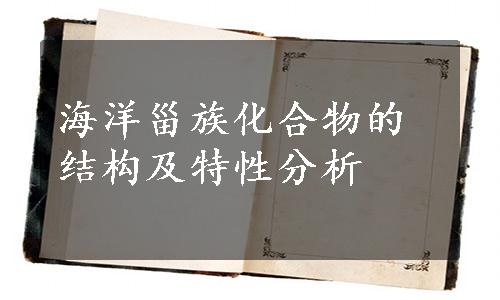 海洋甾族化合物的
结构及特性分析